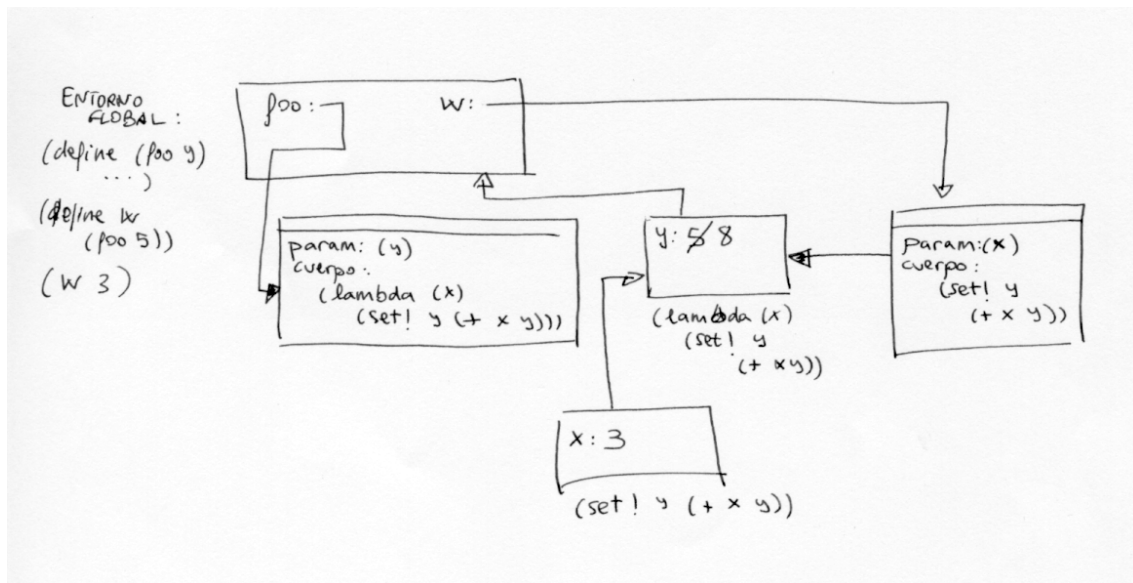 ENTORNO
GLOBAL:
(define (foo y)
...)
(define w
(foo 5))
(w 3)
foo:
w:
param: (y)
cuerpo:
(lambda (x)
(set! y (+ x y)))
y: 5 8
(lambda (x)
(set! y
(+ x y))
param: (x)
cuerpo:
(set! y
(+ x y))
x: 3
(set! y (+ x y))